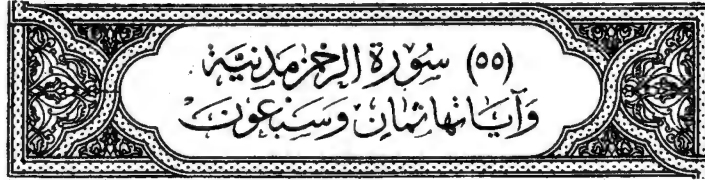 (٥٥) سُورَة الرَّحْمٰن مَدَنِيَّة
وَآيَاتهَا ثَمَان وَسَبْعُونَ